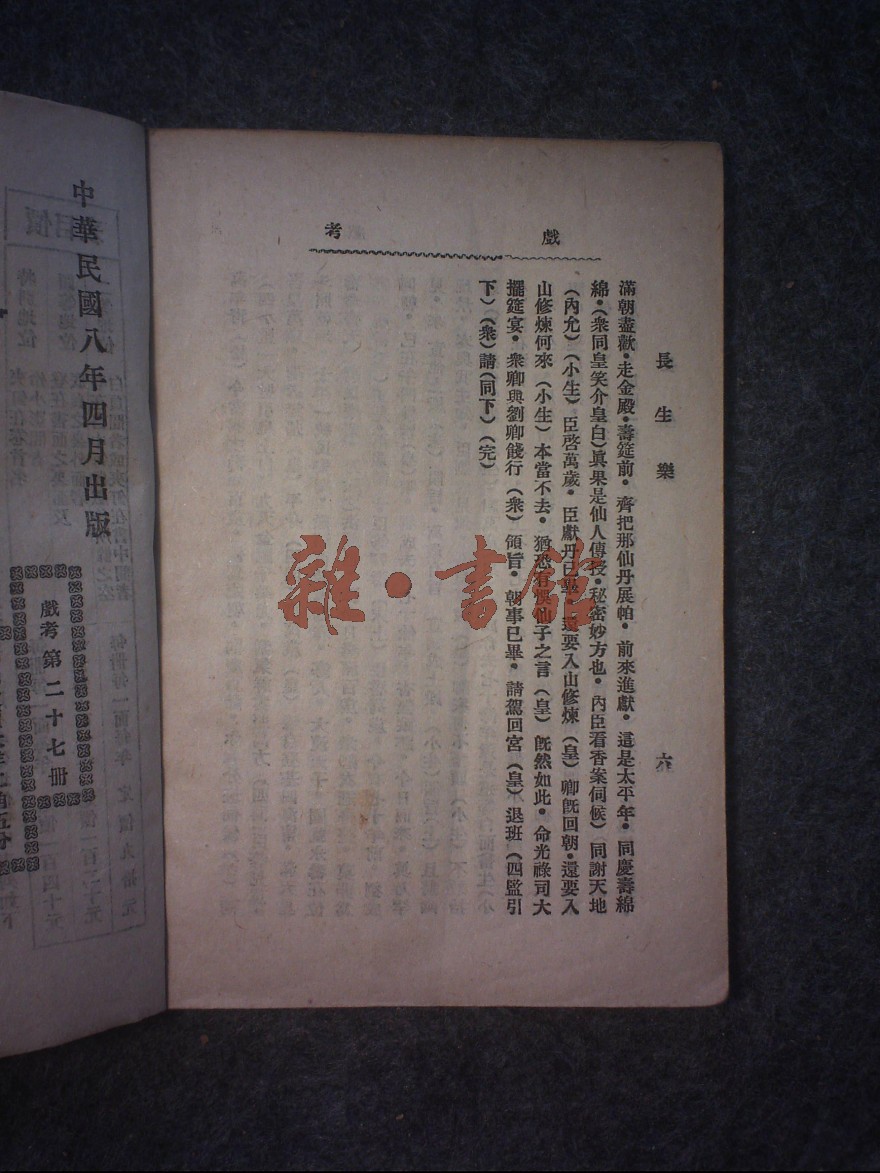 戲考
長生樂
六
滿朝盡歡•走金殿•壽筵前•齊把那仙丹展帕•前來進獻•這是太平年•同慶壽綿
綿•(衆同皇笑介皇白)眞果是仙人傳授•秘密妙方也•內臣看香案伺候)同謝天地
(內允)(小生)臣啓萬歲•臣獻丹已畢 還要入山修煉(皇)卿旣回朝•還要入
山修煉何來(小生)本當不去•猶恐有悞仙子之言(皇)旣然如此•命光祿司大
擺筵宴•衆卿與劉卿餞行(衆)領旨•朝事已畢•請駕回宮(皇)退班(四監引
下)(衆)請(同下)(完)
雜•書館
中華民國八年四月出版
戲考第二十七冊